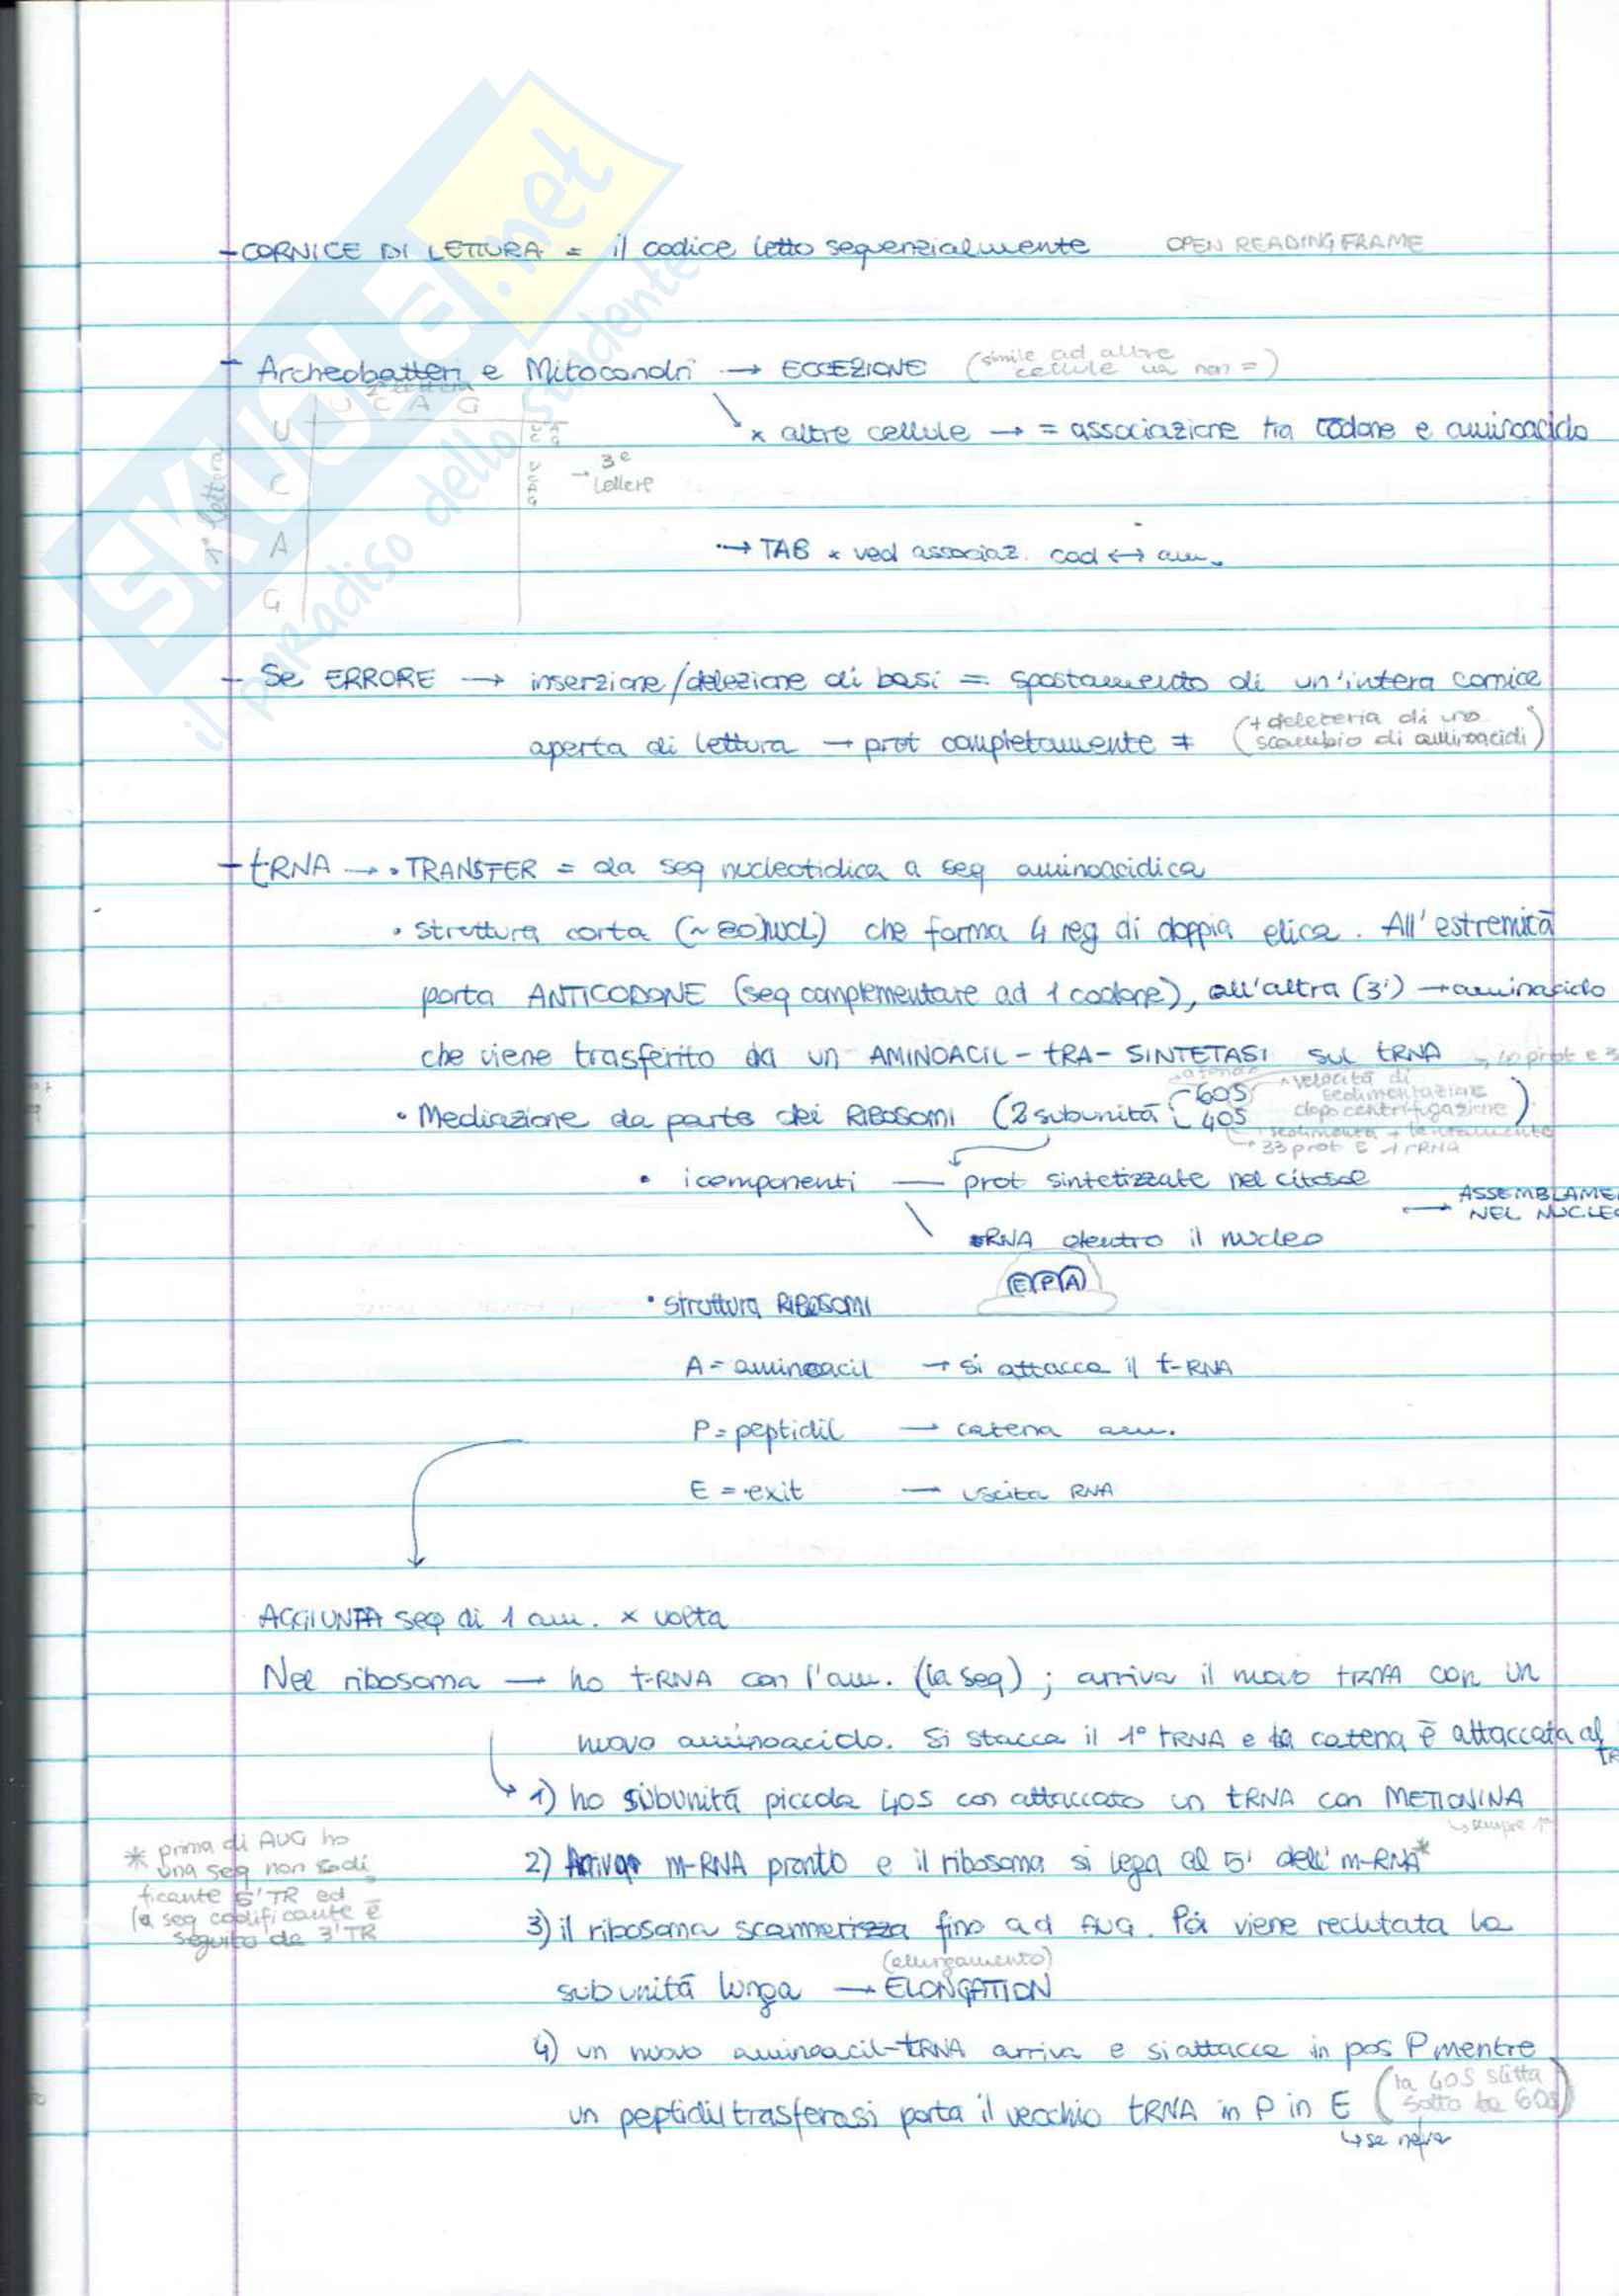 - CORNICE DI LETTURA = il codice letto sequenzialmente OPEN READING FRAME
- Archeobatteri e Mitocondri → ECCEZIONE (simile ad altre cellule ma non =)
2ª lettera
U C A G
x altre cellule → = associazione tra codone e aminoacido
1ª lettera
U
C
A
G
U C A G
U C A G
→ 3e lettere
→ TAB x ved associaz. cod ↔ am.
- Se ERRORE → inserzione/delezione di basi = spostamento di un'intera cornice
aperta di lettura → prot completamente ≠ (+ deleteria di uno scambio di aminoacidi)
- tRNA → • TRANSFER = da seq nucleotidica a seq aminoacidica
• struttura corta (~80 nucl) che forma 4 reg di doppia elica. All'estremità
porta ANTICODONE (seq complementare ad 1 codone), all'altra (3') → aminoacido
che viene trasferito da un AMINOACIL-tRA-SINTETASI sul tRNA
• Mediazione da parte dei RIBOSOMI (2 subunità: 60S 40S)
velocità di sedimentazione dopo centrifugazione
sedimenta + lentamente
33 prot E 1 rRNA
• i componenti — prot sintetizzate nel citosol
→ ASSEMBLAME
NEL NUCLEO
rRNA dentro il nucleo
• struttura RIBOSOMI
E P A
A = aminoacil → si attacca il t-RNA
P = peptidil → catena am.
E = exit — uscita RNA
AGGIUNTA seq di 1 am. x volta
Nel ribosoma → ho t-RNA con l'am. (la seq); arriva il nuovo tRNA con un
nuovo aminoacido. Si stacca il 1° tRNA e la catena è attaccata al
1) ho subunità piccola 40S con attaccato un tRNA con METIONINA
↳ sempre 1ª
2) Arriva m-RNA pronto e il ribosoma si lega al 5' dell'm-RNA*
* prima di AUG ho
una seq non codi
ficante 5'TR ed
la seq codificante è
seguito da 3'TR
3) il ribosoma scannerizza fino ad AUG. Poi viene reclutata la
(allungamento)
subunità lunga → ELONGATION
4) un nuovo aminoacil-tRNA arriva e si attacca in pos P mentre
un peptidil trasferasi porta il vecchio tRNA in P in E (la 40S slitta sotto la 60S)
SKUOLA.net
il paradiso dello studente